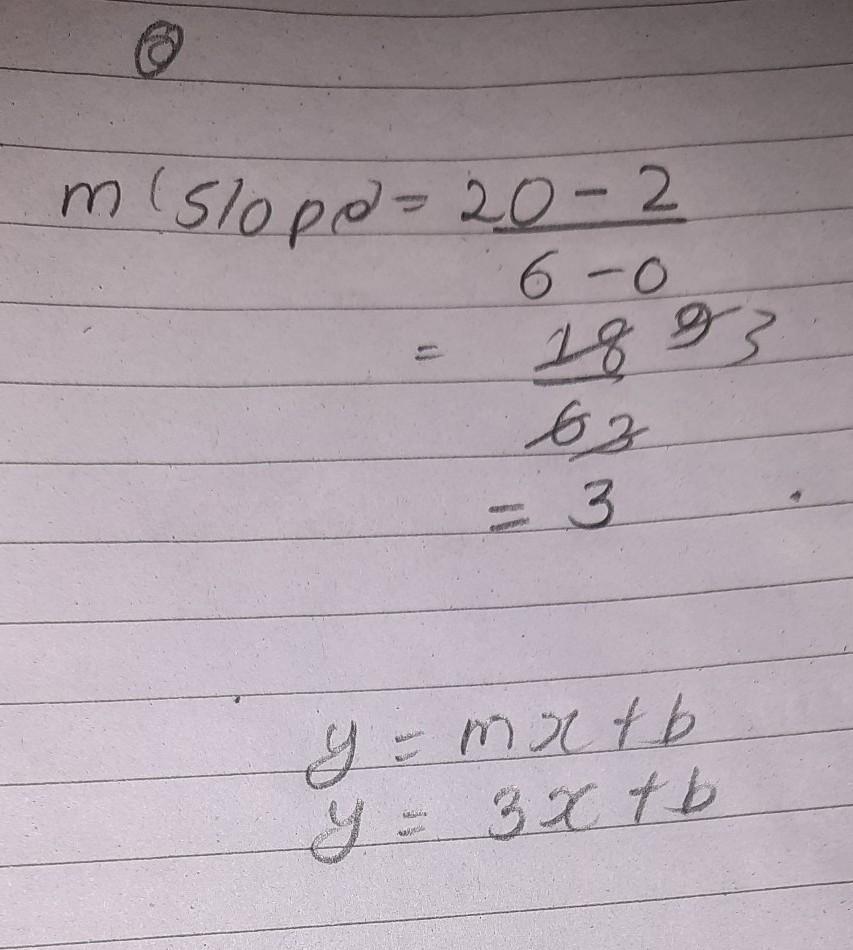 6
m (slope) = 20 - 2
6 - 0
= 18 9 3
6 3
= 3
y = mx + b
y = 3x + b